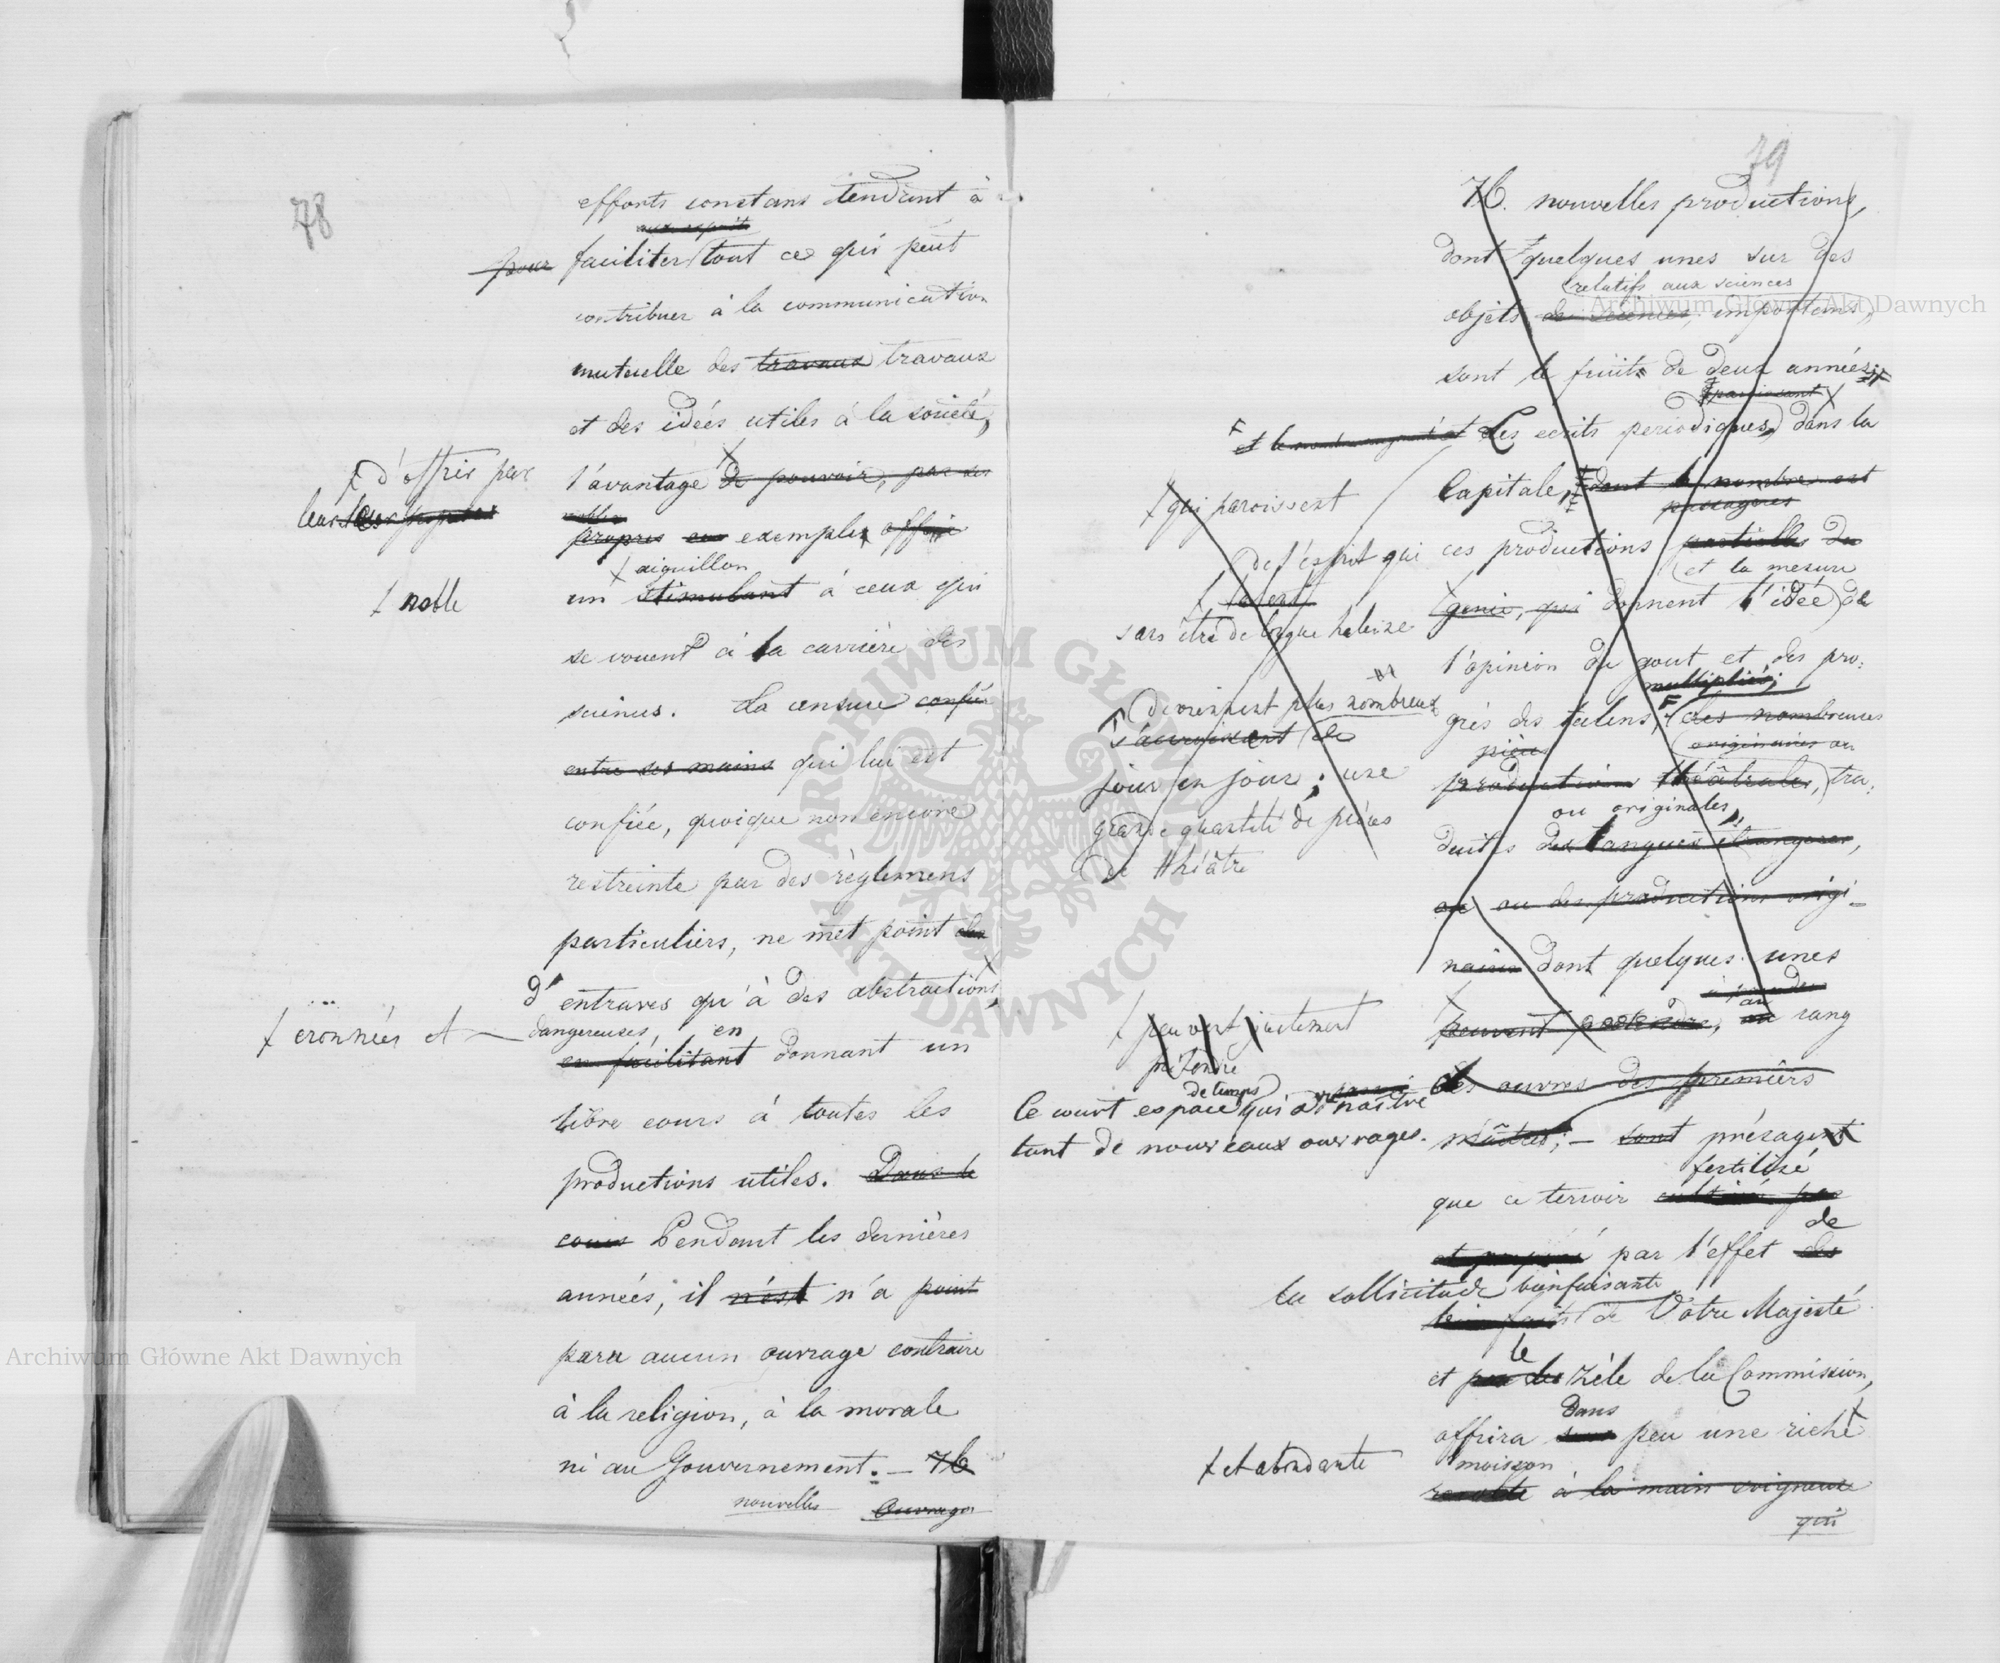 78
efforts constans tendant à
aux esprits
pour faciliter tout ce qui peut
contribuer à la communication
mutuelle des travaux travaux
et des idées utiles à la société,
d'offrir par
leurs
l'avantage de pouvoir, par ses
propres exemples offrir
aiguillon
noble
un stimulant à ceux qui
se vouent à la carrière des
sciences. La censure confiée
entre ses mains qui lui est
confiée, quoique non encore
restreinte par des règlemens
particuliers, ne met point des
d'entraves qu'à des abstractions,
eronnées et dangereuses, en
en facilitant donnant un
libre cours à toutes les
productions utiles. Dans le
cours Pendant les dernières
années, il n'est n'a point
paru aucun ouvrage contraire
à la religion, à la morale
ni au Gouvernement. — 76
nouvelles Ouvrages
79
76. nouvelles productions,
dont quelques unes sur des
relatifs aux sciences
objets de sciences, importans,
sont le fruit de deux années
paroissant
et le Les ecrits periodiques, dans la
qui paroissent
Capitale, dont le nombre est
passagères
de l'esprit qui
ces productions partielles du
et la mesure
talens
genie, qui donnent l'idée de
sans être de longue haleine
l'opinion du gout et des pro-
multipliés;
deviennent plus nombreux
grés des talens, des nombreuses
s'accroissent de
originaires ou
pièces
jour en jour; une
productions théâtrales, tra-
ou originales,
grande quantité de pièces
duites des langues étrangeres,
de théâtre
ou ou des productions origi-
naires dont quelques unes
au
peuvent justement
peuvent prétendre, au rang
prétendre
des œuvres des premiers
de temps
Ce court espace qui a vu naître
tant de nouveaux ouvrages.
maîtres; — sont présagent
fertilisé
que ce terroir cultivé par
de
par l'effet des
la sollicitude bienfaisante
bienfaits de Votre Majesté
le
et par le zèle de la Commission,
dans
offrira sous peu une riche
et abondante
moisson
recolte à la main soigneuse
qui
Archiwum Główne Akt Dawnych
Archiwum Główne Akt Dawnych
ARCHIWUM GŁÓWNE AKT DAWNYCH